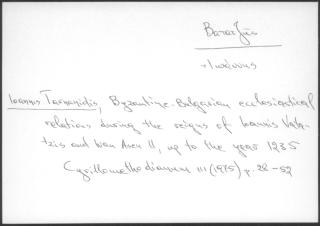 Βατατζής
Ἰωάννης
Ioannis Tarnanidis, Byzantine-Bulgarian ecclesiastical
relations during the reigns of Ioannis Vata-
tzis and Ivan Asen II, up to the year 1235
Cyrillomethodianum III (1975) p. 28-52